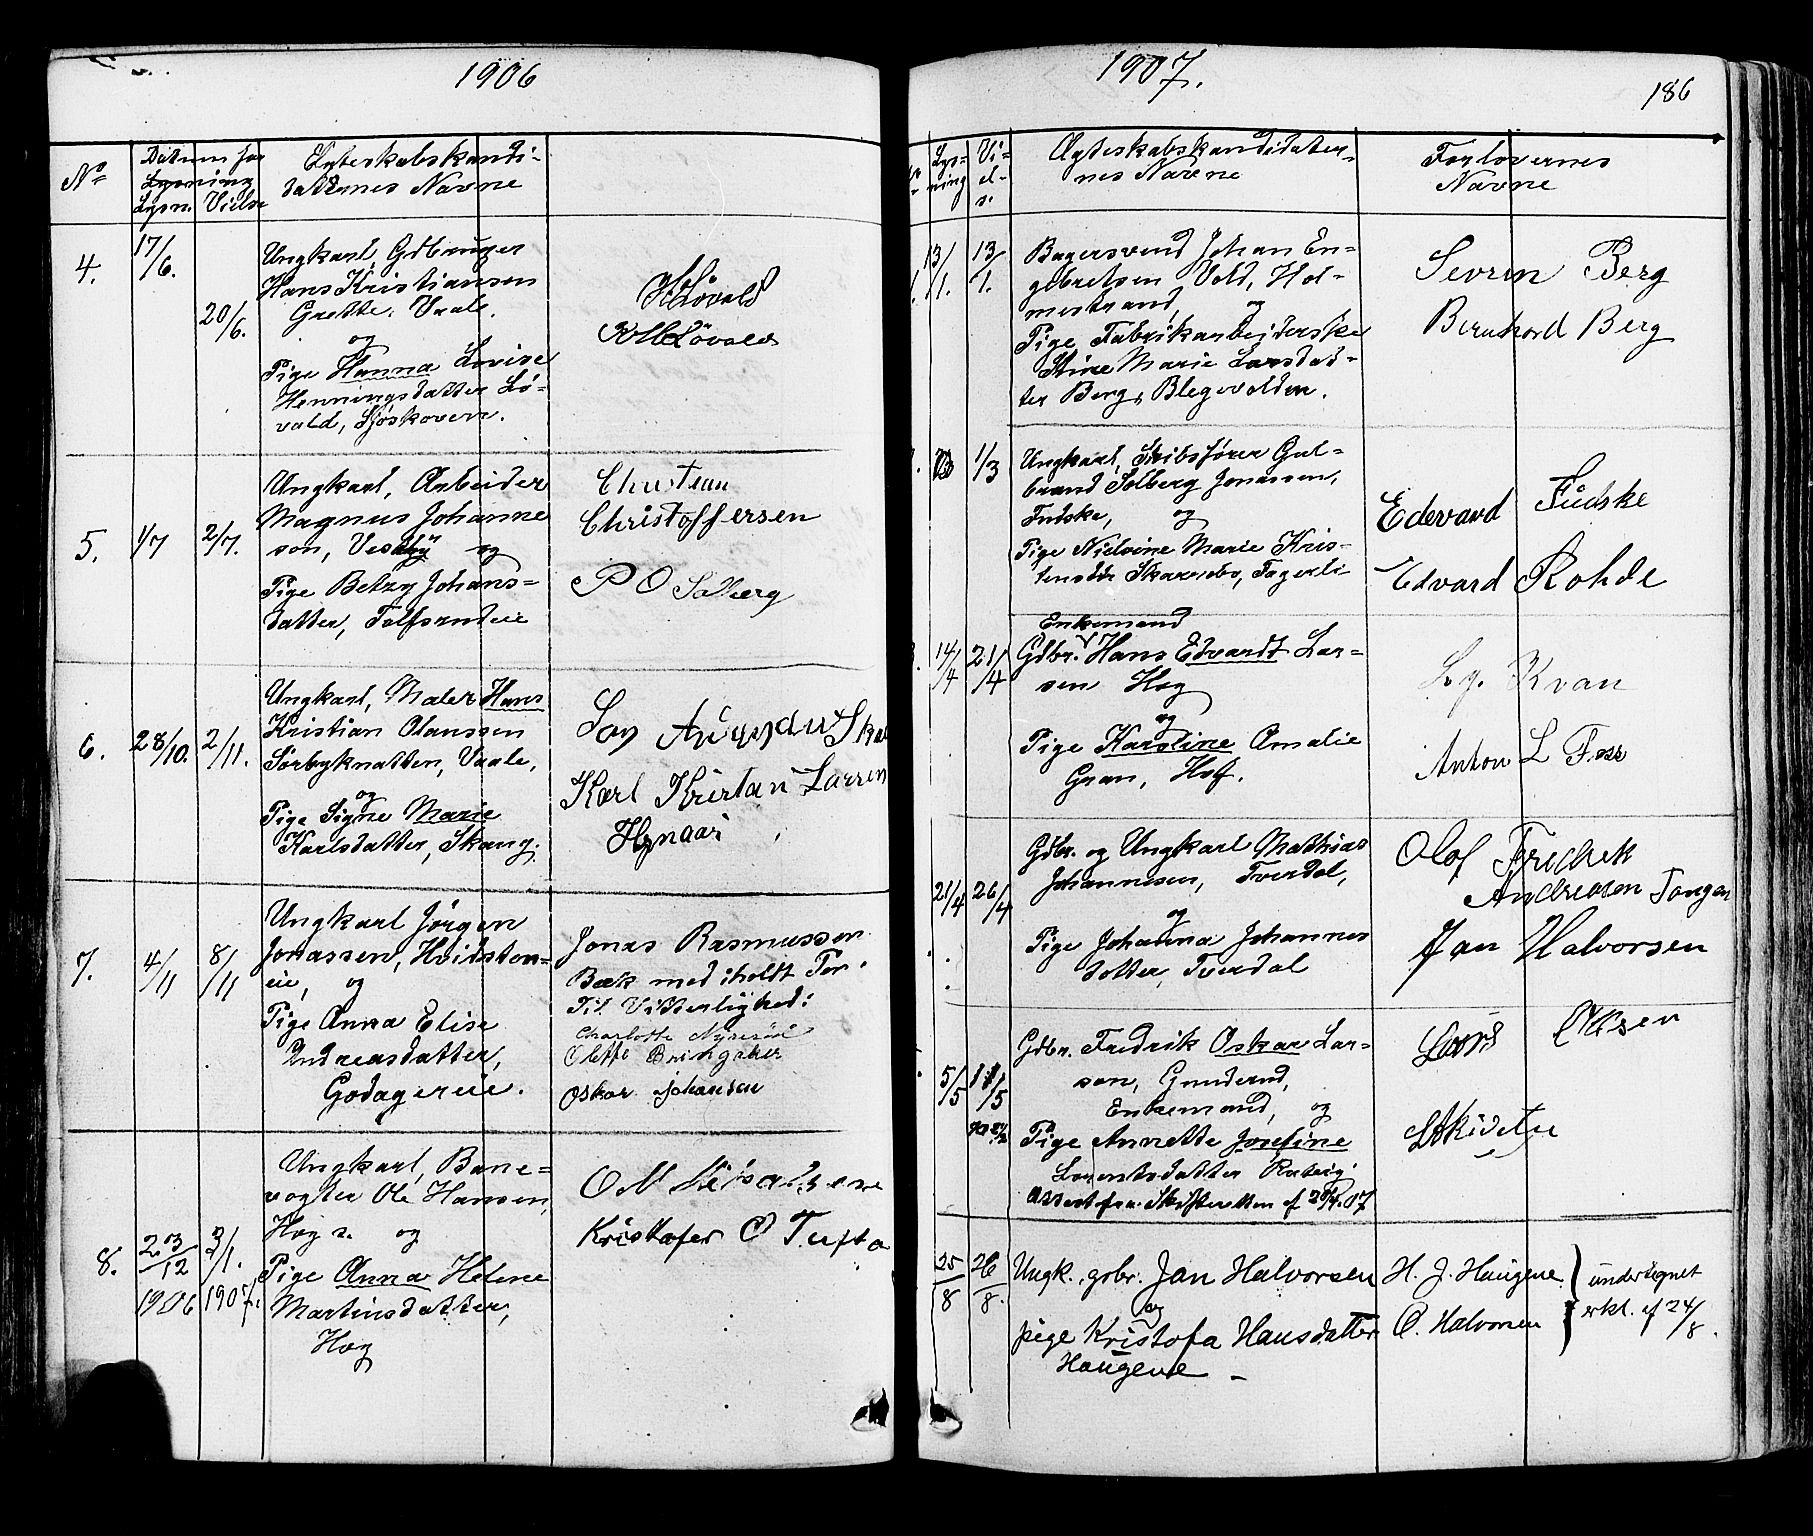 1906
No
Datum for
Lysning
Lysn. Vielse
Egteskabskandi-
daternes Navne
4.
17/6.
20/6.
Ungkarl, Gdbruger
Hans Kristiansen
Grette, Vaale.
og
Pige Hanna Lovise
Henningsdatter Lø-
vald, Sjøskoven.
H Løvald
5.
1/7
2/7.
Ungkarl, Arbeider
Magnus Johanne
son,
og
Pige Betzy Johans-
datter,
Christian
Christoffersen
P O Solberg
6.
28/10.
2/11.
Ungkarl, Maler Hans
Kristian Olaussen
Sørbyknatten, Vaale,
og
Pige Signe Marie
Karlsdatter, Skang.
Karl Kristian Larsen
7.
4/11
8/11
Ungkarl Jørgen
Jonassen, Hvidsten-
eie, og
Pige Anna Elise
Andreasdatter,
Godagereie.
Jonas Rasmussen
Bæk med iholdt Pen.
Til Vitterlighed:
Charlotte
Olette Bringaker
Oskar Johansen
8.
23/12
1906
3/1.
1907.
Ungkarl, Bane-
vogter Ole Hansen,
Hog s. og
Pige Anna Helene
Martinsdatter,
Hog
Kristofer O Tufte
1907.
186
Lys-
ning
Vi-
el-
s.
Ægteskabskandidater-
nes Navne
Forlovernes
Navne
13/1.
13/1.
Bagersvend Johan En-
gebretsen Vold, Hol-
mestrand, og
Pige Fabrikarbeiderske
Stine Marie Larsdat-
ter Berg, Blegevolden.
Sevrin Berg
Bernhard Berg
1/3
Ungkarl, Skibsfører Gul-
brand Solberg Jonassen,
Fudske, og
Pige Nielvine Marie Kris-
tensdtr Skarnebo, Fagerli
Edevard Fudske
Edvard Rohde
14/4
21/4
Enkemand
Gdbr. Hans Edvardt Lar-
sen Hog
og
Pige Karoline Amalie
Gran, Hof.
Kvan
Anton L Foss
21/4
26/4
Gdbr. og Ungkarl Mathias
Johannesen, Tverdal,
og
Pige Johanna Johannes
datter, Tverdal
Olof Fredrek
Andreasen Tangen
Jan Halvorsen
5/5
11/5
Gdbr. Fredrik Oskar Lar-
sen, Grunderud,
Enkemand, og
Pige Annette Josefine
Lorentsdatter
Attest fra Skifteretten af
Lars Olsen
25/8
26/8.
Ungk., gbr. Jan Halvorsen
og
pige Kristofa Hansdatter
Haugene
H. J. Haugene
O. Halvorsen
undertegnet
erkl. af 24/8.